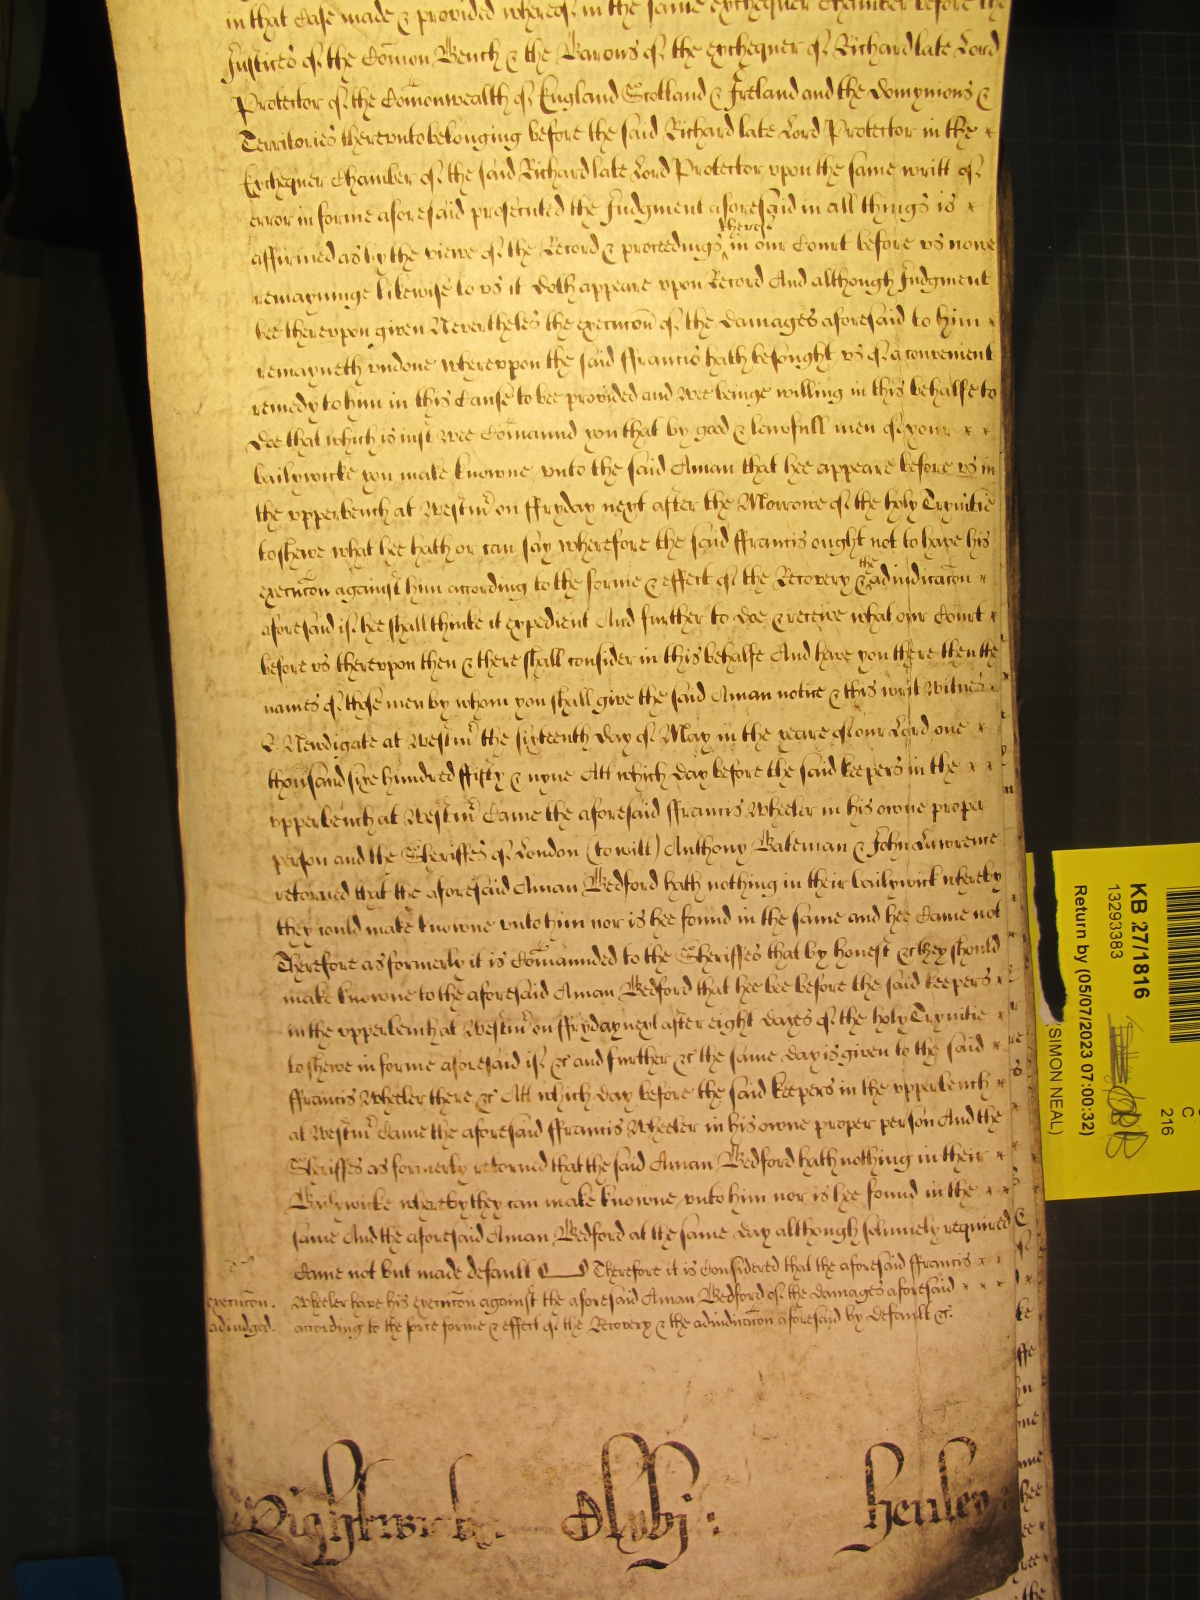 in that Case made & provided whereof in the same exchequer Chamber before the
Justices of the Comon Bench & the Barons of the exchequer of Richard late Lord
Protector of the Comonwealth of England Scotland & Ireland and the Domynions &
Territories thereunto belonging before the said Richard late Lord Protector in the
Exchequer Chamber of the said Richard late Lord Protector vpon the same writt of
error in forme aforesaid prosecuted the Judgment aforesaid in all things is
affirmed as by the viewe of the Record & proceedings thereof in our Court before vs nowe
remayninge likewise to vs it doth appeare vpon Record And although Judgment
bee therevpon given Nevertheles the execucon of the damages aforesaid to him
remayneth vndone wherevpon the said ffrancis hath besought vs of a convenient
remedy to him in this Cause to bee provided and wee beinge willing in this behalfe to
doe that which is iust wee Comaund you that by good & lawfull men of your
bailywicke you make knowne vnto the said Aman that hee appeare before vs in
the vpperbench at Westmr on ffryday next after the Morrowe of the holy Trynitie
to shewe what hee hath or can say wherefore the said ffrancis ought not to have his
execucon against him according to the forme & effect of the Recovery & the adiudicacon
aforesaid if hee shall thinke it expedient And further to doe & receive what our Court
before vs therevpon then & there shall consider in this behalfe And have you there then the
names of those men by whom you shall give the said Aman notice & this writ Witnes
R Newdigate at Westmr the sixteenth day of May in the yeare of our Lord one
thousand sixe hundred ffifty & nyne Att which day before the said keepers in the
vpperbench at Westmr Came the aforesaid ffrancis Wheeler in his owne proper
person and the Sheriffes of London (to witt) Anthony Bateman & John Lawrence
retorned that the aforesaid Aman Bedford hath nothing in their bailywick whereby
they could make knowne vnto him nor is hee found in the same and hee Came not
Therefore as formerly it is Comaunded to the Sheriffes that by honest &c they should
make knowne to the aforesaid Aman Bedford that hee bee before the said keepers
in the vpperbench at Westmr on ffryday next after eight dayes of the holy Trynitie
to shewe in forme aforesaid if &c and further &c the same day is given to the said
ffrancis Wheeler there &c Att which day before the said keepers in the vpperbench
at Westmr Came the aforesaid ffrancis Wheeler in his owne proper person And the
Sheriffes as formerly retorned that the said Aman Bedford hath nothing in their
Bailywicke whereby they can make knowne vnto him nor is hee found in the
same And the aforesaid Aman Bedford at the same day although solemnely required
Came not but made default Therefore it is Considered that the aforesaid ffrancis
execucon. Wheeler have his execucon against the aforesaid Aman Bedford of the damages aforesaid
adiudged. according to the force forme & effect of the Recovery & the adiudicacon aforesaid by Default &c.
Henley
KB 27/1816
13293383
Return by (05/07/2023 07:00:32)
SIMON NEAL)
C
216